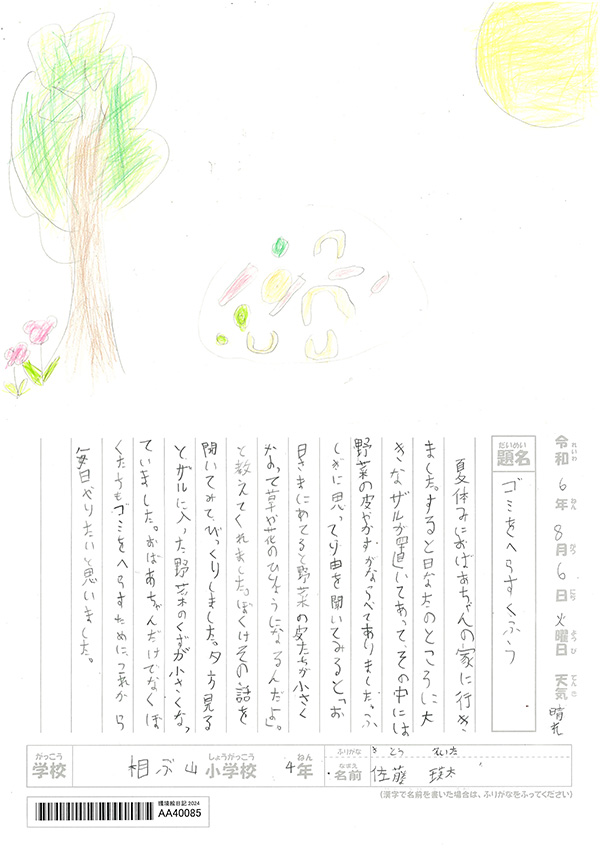 令和6年8月6日火曜日 天気 晴れ
れいわ ねん がつ にち ようび てんき
だいめい
題名 ゴミをへらすくふう
夏休みにおばあちゃんの家に行き
ました。すると日なたのところに大
きなザルが置いてあって、その中には
野菜の皮やかすがならべてありました。ふ
しぎに思って理由を聞いてみると「お
日さまにあてると野菜の皮たちが小さく
なって草や花のひりょうになるんだよ」。
と教えてくれました。ぼくはその話を
聞いてみてびっくりしました。夕方見る
とザルに入った野菜のくずが小さくなっ
ていました。おばあちゃんだけでなくぼ
くたちもゴミをへらすために、これから
毎日やりたいと思いました。
がっこう しょうがっこう ねん ふりがな さとう えいた
学校 相ぶ山小学校 4年 なまえ 名前 佐藤 瑛太
(漢字で名前を書いた場合は、ふりがなをふってください)
環境絵日記 2024
AA40085